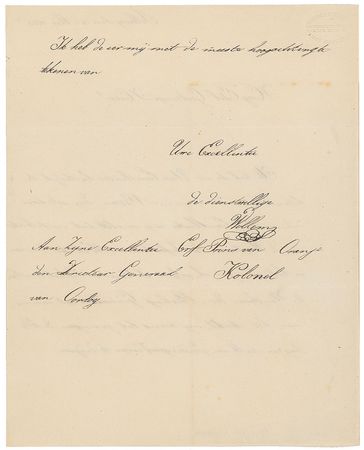 Ik heb de eer mij met de meeste hoogachting te
tekenen van
Uwe Excellentie
de dienstwillige
Willem
Aan Zyne Excellentie Erf Prins van Oranje
den Directeur Generaal Kolonel
van Oorlog